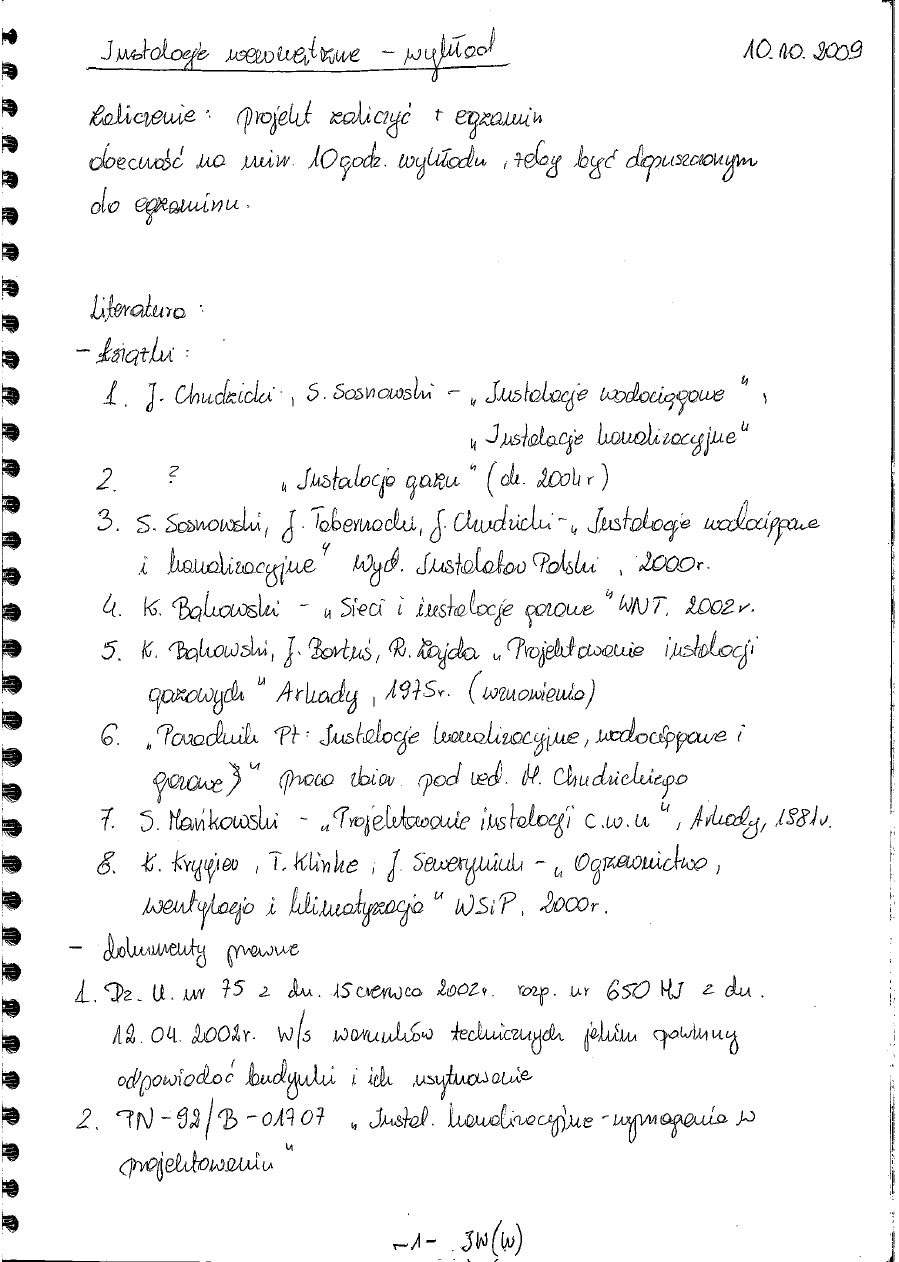 Instalacje wewnętrzne – wykład 10.10.2009
Zaliczenie: projekt zaliczyć + egzamin
obecność na min. 10 godz. wykładu, żeby być dopuszczonym
do egzaminu.
Literatura:
– książki:
1. J. Chudzicki, S. Sosnowski – „Instalacje wodociągowe",
„Instalacje kanalizacyjne"
2. ? „Instalacja gazu" (ok. 2004r)
3. S. Sosnowski, J. Tabernacki, J. Chudzicki – „Instalacje wodociągowe
i kanalizacyjne" Wyd. Instalator Polski, 2000r.
4. K. Bąkowski – „Sieci i instalacje gazowe" WNT. 2002r.
5. K. Bąkowski, J. Bartuś, R. Zajda „Projektowanie instalacji
gazowych" Arkady, 1975r. (wznowienia)
6. „Poradnik Pt: Instalacje kanalizacyjne, wodociągowe i
gazowe}" praca zbior. pod red. H. Chudzickiego
7. S. Mańkowski – „Projektowanie instalacji c.w.u", Arkady, 1981r.
8. K. Krygier, T. Klinke, J. Seweryniuk – „Ogrzewnictwo,
wentylacja i klimatyzacja" WSiP, 2000r.
– dokumenty prawne
1. Dz. U. nr 75 z dn. 15 czerwca 2002r. rozp. nr 650 MJ z dn.
12.04.2002r. w/s warunków technicznych jakim powinny
odpowiadać budynki i ich usytuowanie
2. PN–92/B–01707 „Instal. kanalizacyjne – wymagania w
projektowaniu"
–1– IW(W)